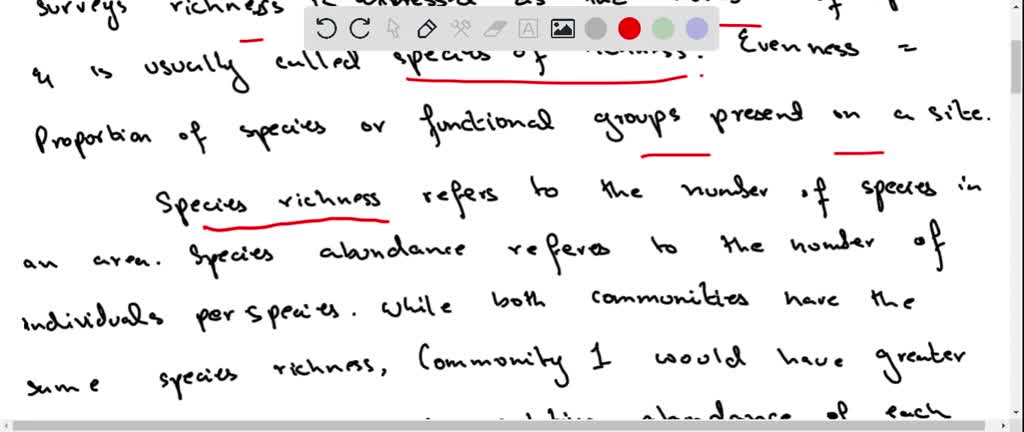 surveys richness is expressed as the of
& is usually called species of richness. Evenness =
Proportion of species or functional groups present on a site.
Species richness refers to the number of species in
an area. Species abundance referes to the number of
individuals per species. While both communities have the
same species richness, Community 1 would have greater
abundance of each